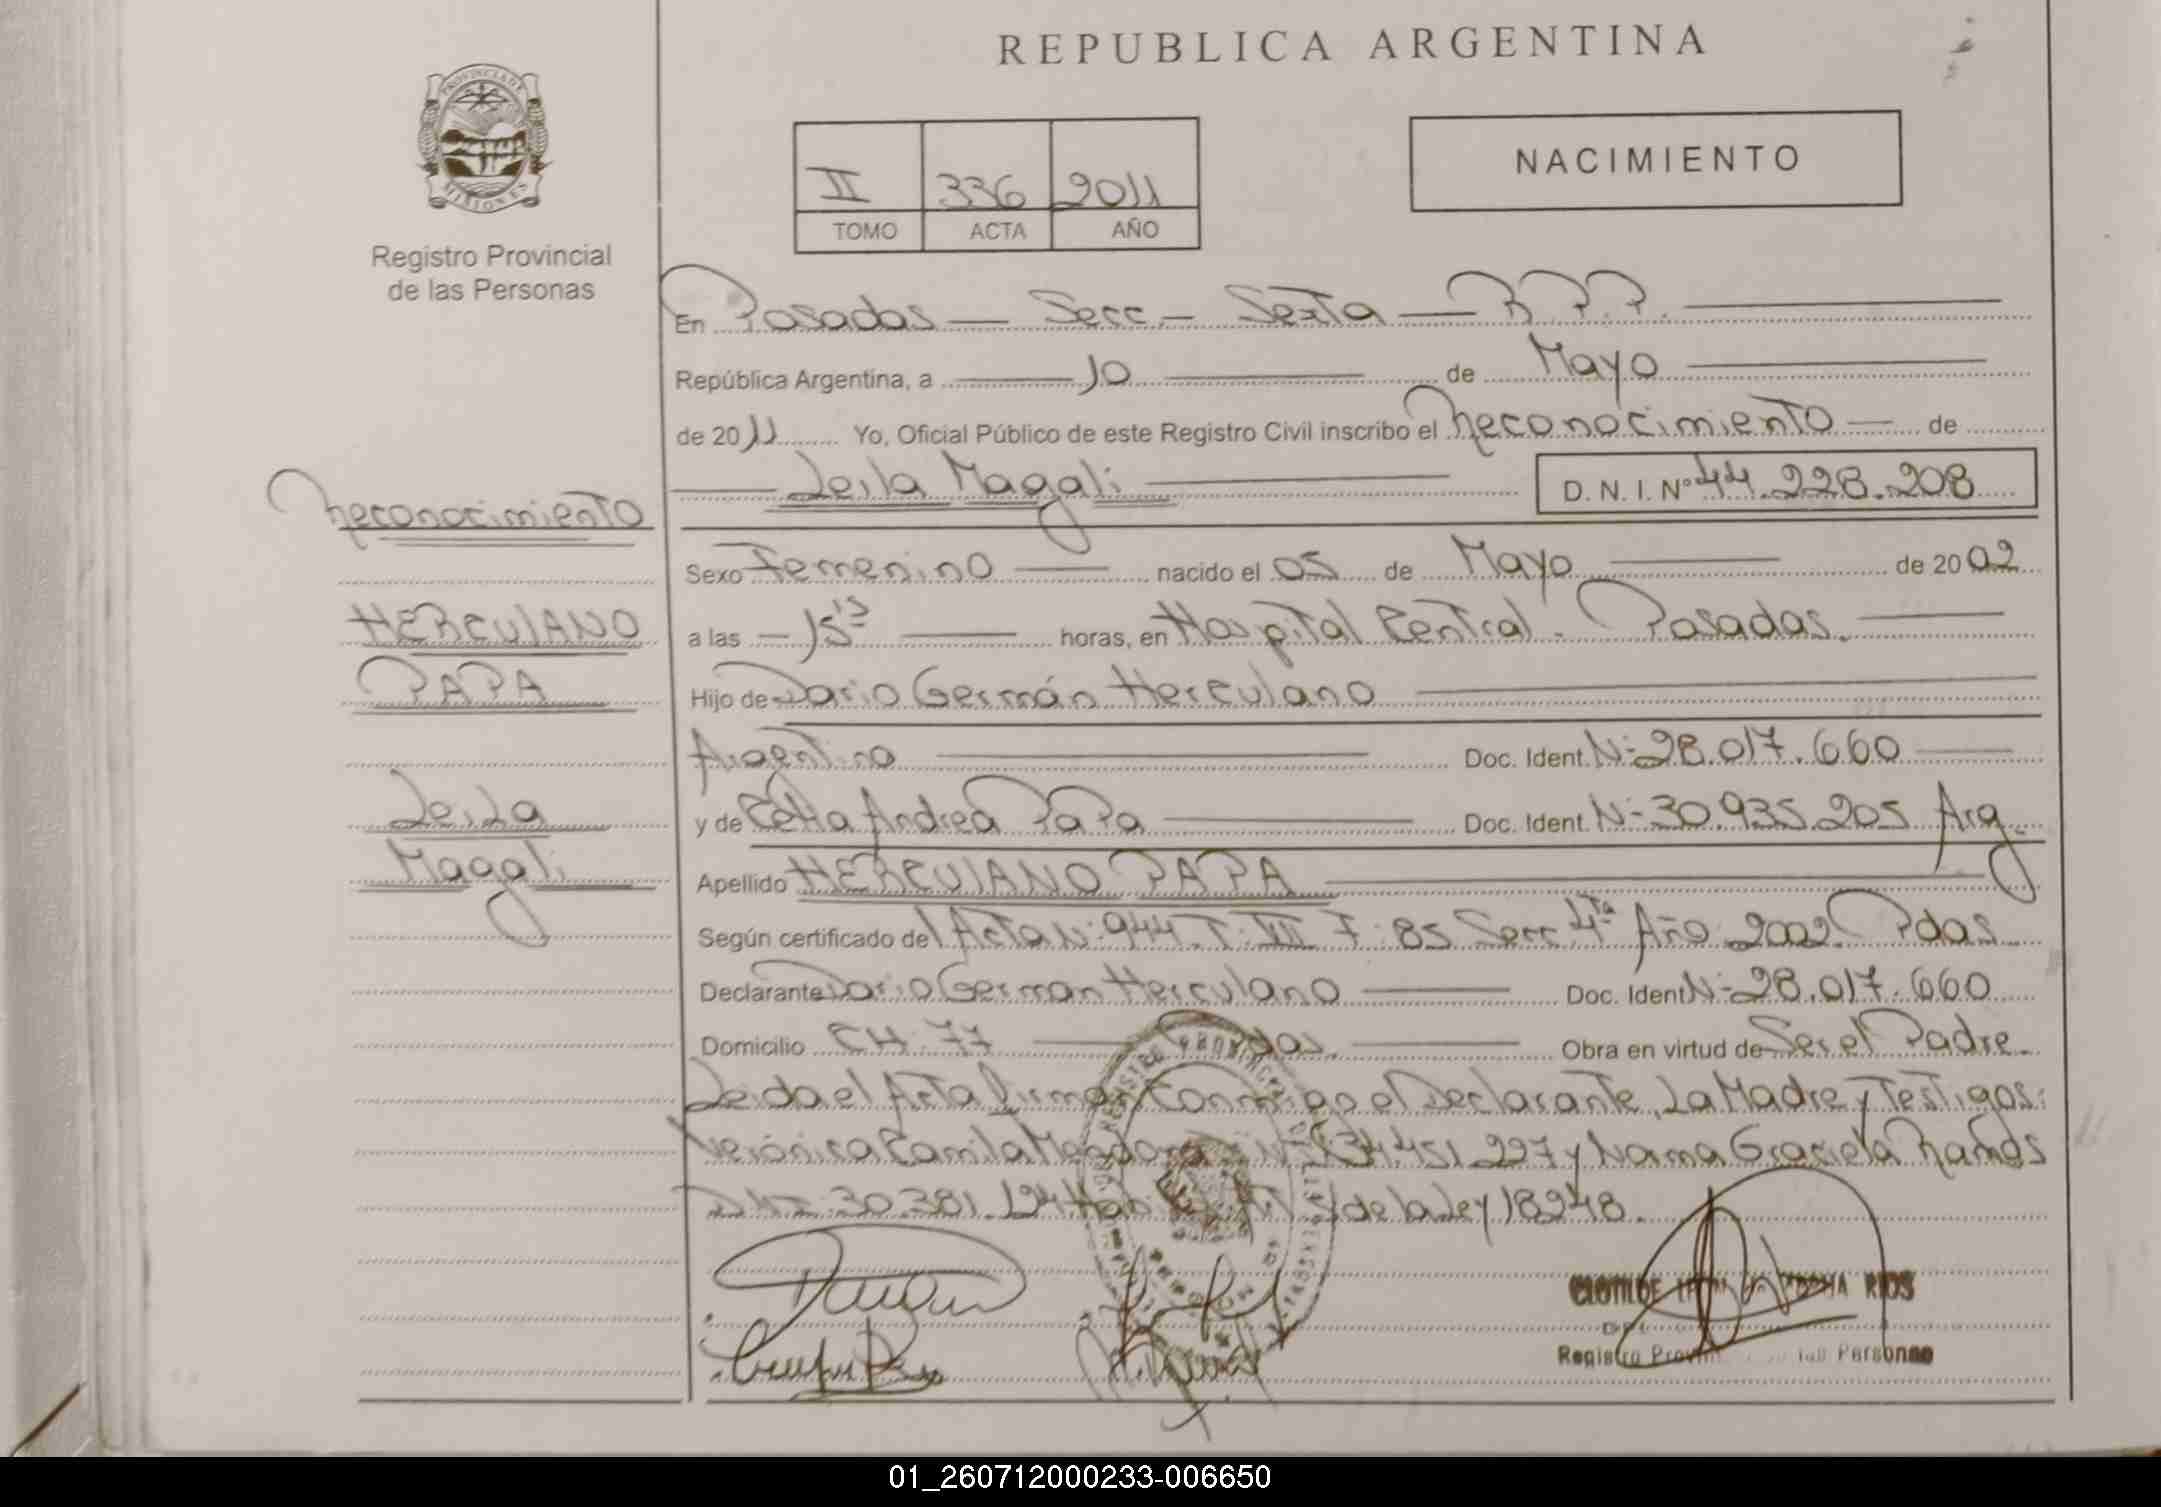 REPUBLICA ARGENTINA
PROVINCIA DE
MISIONES
Registro Provincial
de las Personas
II 336 2011
TOMO ACTA AÑO
NACIMIENTO
En Posadas — Secc — Sexta — R.P.P.
República Argentina, a 10 de Mayo
de 2011 Yo, Oficial Público de este Registro Civil inscribo el Reconocimiento — de
Leila Magali D. N. I. Nº 44.228.208
Reconocimiento
HERCULANO
PAPA
Leila
Magali
Sexo Femenino nacido el 05 de Mayo de 2002
a las 15 15 horas, en Hospital Central. Posadas.
Hijo de Dario Germán Herculano
Argentino Doc. Ident. Nº 28.017.660
y de Andrea Papa Doc. Ident. Nº 30.935.205 Arg.
Apellido HERCULANO PAPA
Según certificado del Acta Nº 944 T. VII F. 85 Secc 4ta Año 2002 Pdas.
Declarante Dario German Herculano Doc. Ident. Nº 28.017.660
Domicilio CH. 77 Pdas. Obra en virtud de Ser el Padre.
Leida el Acta firman Conmigo el Declarante, La Madre y Testigos:
Verónica Camila 34.451.227 y Norma Graciela Ramos
30.381. de la Ley 18248.
CLOTILDE RIOS
Registro Personas
01_260712000233-006650